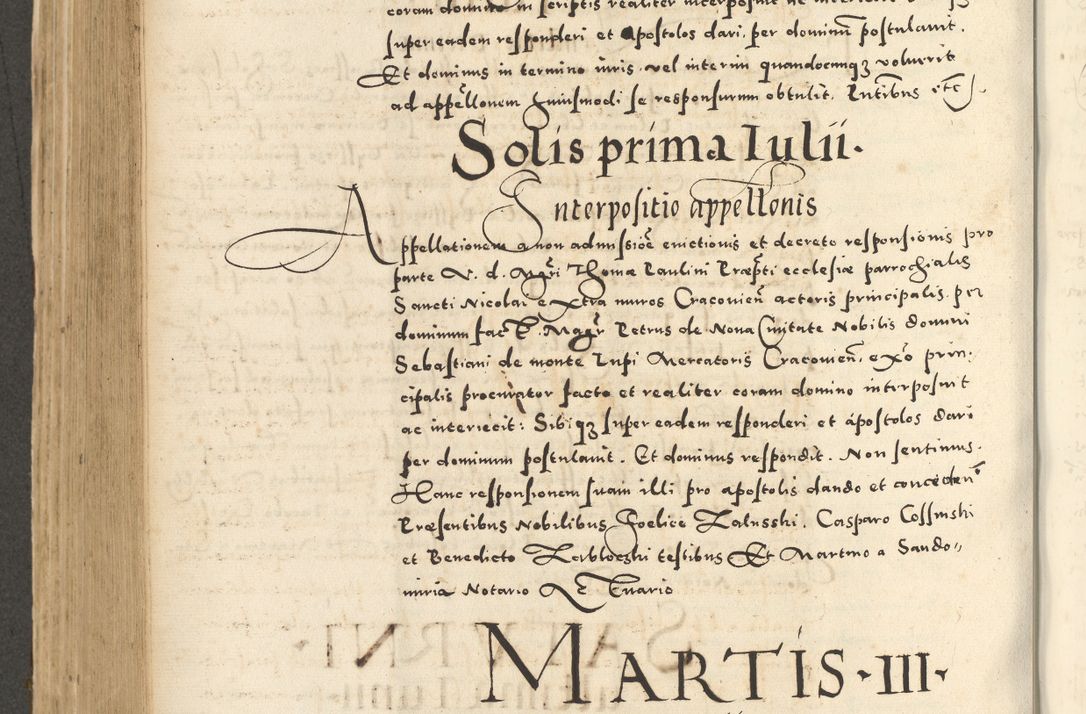 coram domino in scriptis realiter interposuit
super eadem responderi et Apostolos dari, per dominũ postulavit.
Et dominus in termino iuris vel interim quandocunqȝ voluerit
ad appẽllonem huiusmodi se responsurum obtulit. Pñtibus etc̃
Solis prima Iulii.
Interpositio appellonis
Appellationem a non admissiõe evictionis et decreto responsionis pro
parte V. d. Mgr̃i Thomæ Paulini Præpt̃i ecclesiæ parrochialis
Sancti Nicolai extra muros Cracovieñ actoris principalis. per
dominum fact. Magr̃ Petrus de Nova Civitate Nobilis domini
Sebastiani de monte Lupi Mercatoris Cracovieñ, exõ prin:
cipalis procurator facto et realiter coram domino interposuit
ac interiecit: Sibiqȝ super eadem responderi et ápostolos dari
per dominum postulavit. Et dominus respondit. Non sentimus.
Hanc responsionem suam illi pro apostolis dando et concedenđ
Præsentibus Nobilibus Foelice Zalusski. Casparo Cossinski
et Benedicto Zabloczki testibus Et Martino a Sando„
miria Notario Actuario
MARTIS · III ·